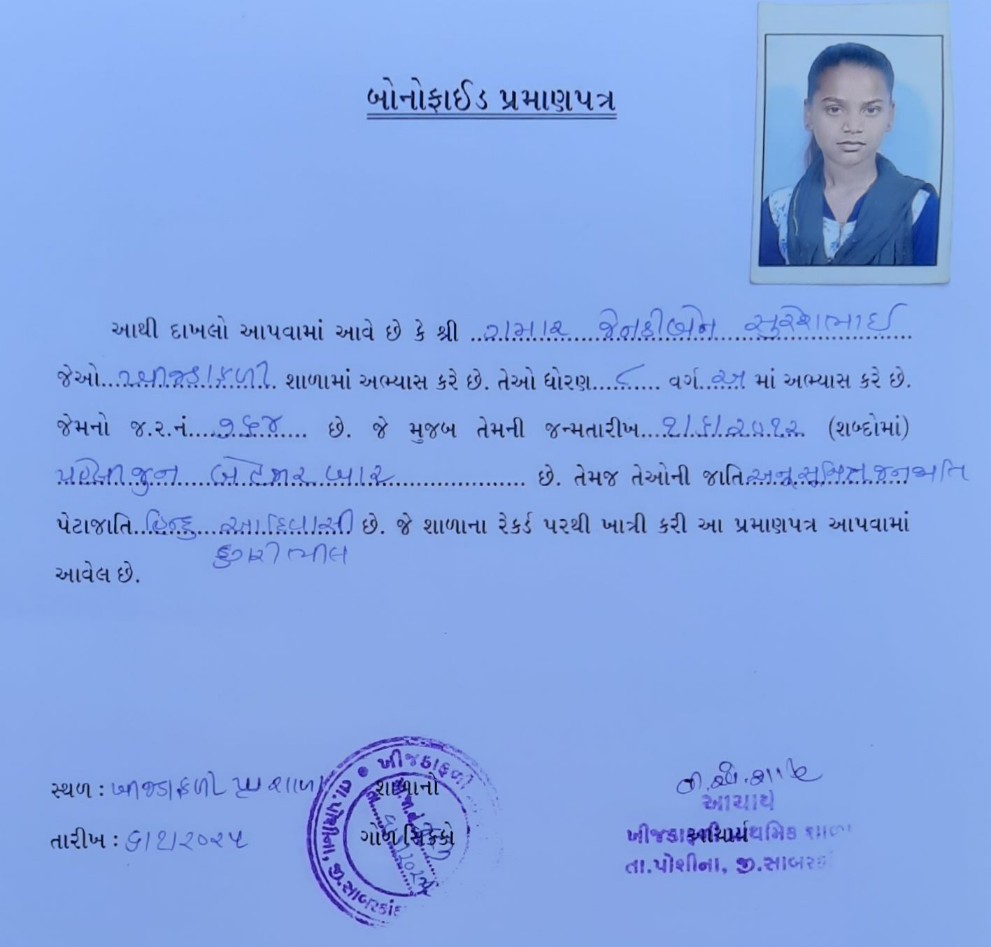 બોનોફાઈડ પ્રમાણપત્ર
આથી દાખલો આપવામાં આવે છે કે શ્રી ગમાર જેનકીબેન સુરેશભાઈ
જેઓ ખીજડાફળી શાળામાં અભ્યાસ કરે છે. તેઓ ધોરણ ૮ વર્ગ અ માં અભ્યાસ કરે છે.
જેમનો જ.ર.નં. ૭૬૪ છે. જે મુજબ તેમની જન્મતારીખ ૧/૬/૨૦૧૨ (શબ્દોમાં)
પહેલી જુન બે હજાર બાર છે. તેમજ તેઓની જાતિ અનુસૂચિત જનજાતિ
પેટાજાતિ હિન્દુ આદિવાસી છે. જે શાળાના રેકર્ડ પરથી ખાત્રી કરી આ પ્રમાણપત્ર આપવામાં
ડુંગરી ભીલ
આવેલ છે.
સ્થળ : ખીજડાફળી પ્રા શાળા
શાળાનો
તારીખ : ૬/૧/૨૦૨૫
ગોળ સિક્કો
ખીજડાફળી
તા.પોશીના, જી.સાબરકાં
આચાર્ય
આચાર્ય
ખીજડાફળી પ્રાથમિક શાળા
તા.પોશીના, જી.સાબરકાં